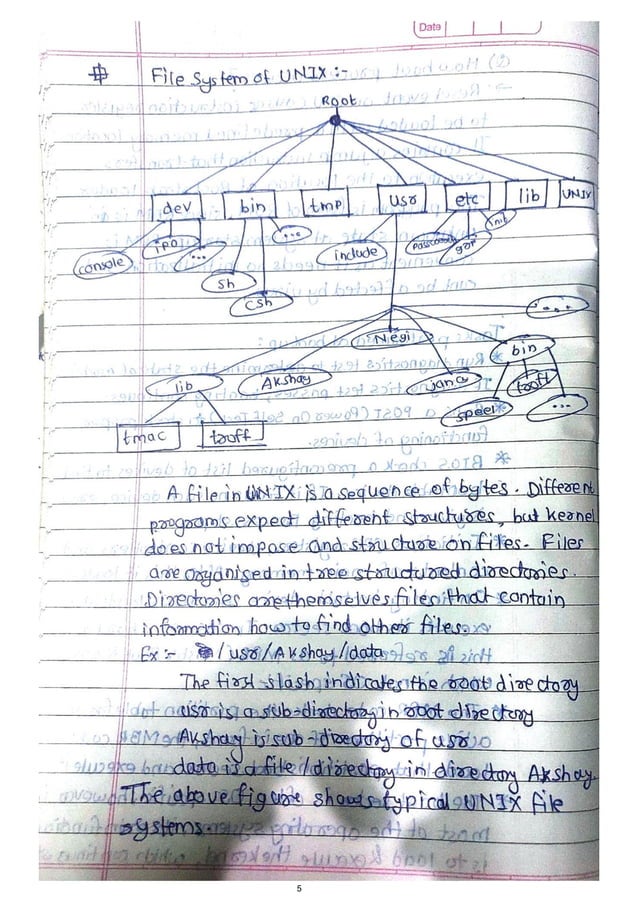 Date
File System of UNIX :-
Root
dev bin tmp usr etc lib UNIX
console ... ... include
sh
csh
....
Negi
lib Akshay jana bin
troff
...
tmac troff
A file in UNIX is a sequence of bytes. Different
programs expect different structures, but kernel
does not impose and structure on files. Files
are organised in tree structured directories.
Directories are themselves files that contain
information how to find other files.
Ex :- /usr/Akshay/data
The first slash indicates the root directory
usr is a sub-directory in root directory
Akshay is sub-directory of usr
data is a file/directory in directory Akshay.
The above figure shows typical UNIX file
systems.
5